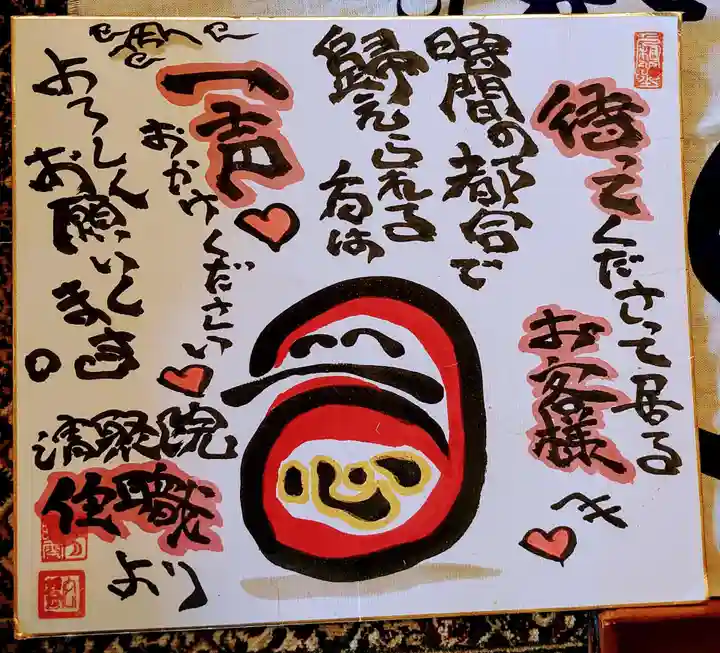 待ってくださって居る
お客様へ
時間の都合で
歸えられる方は
一声
おかけください
よろしく
お願いしま
す。
清聚院
住職
より
心